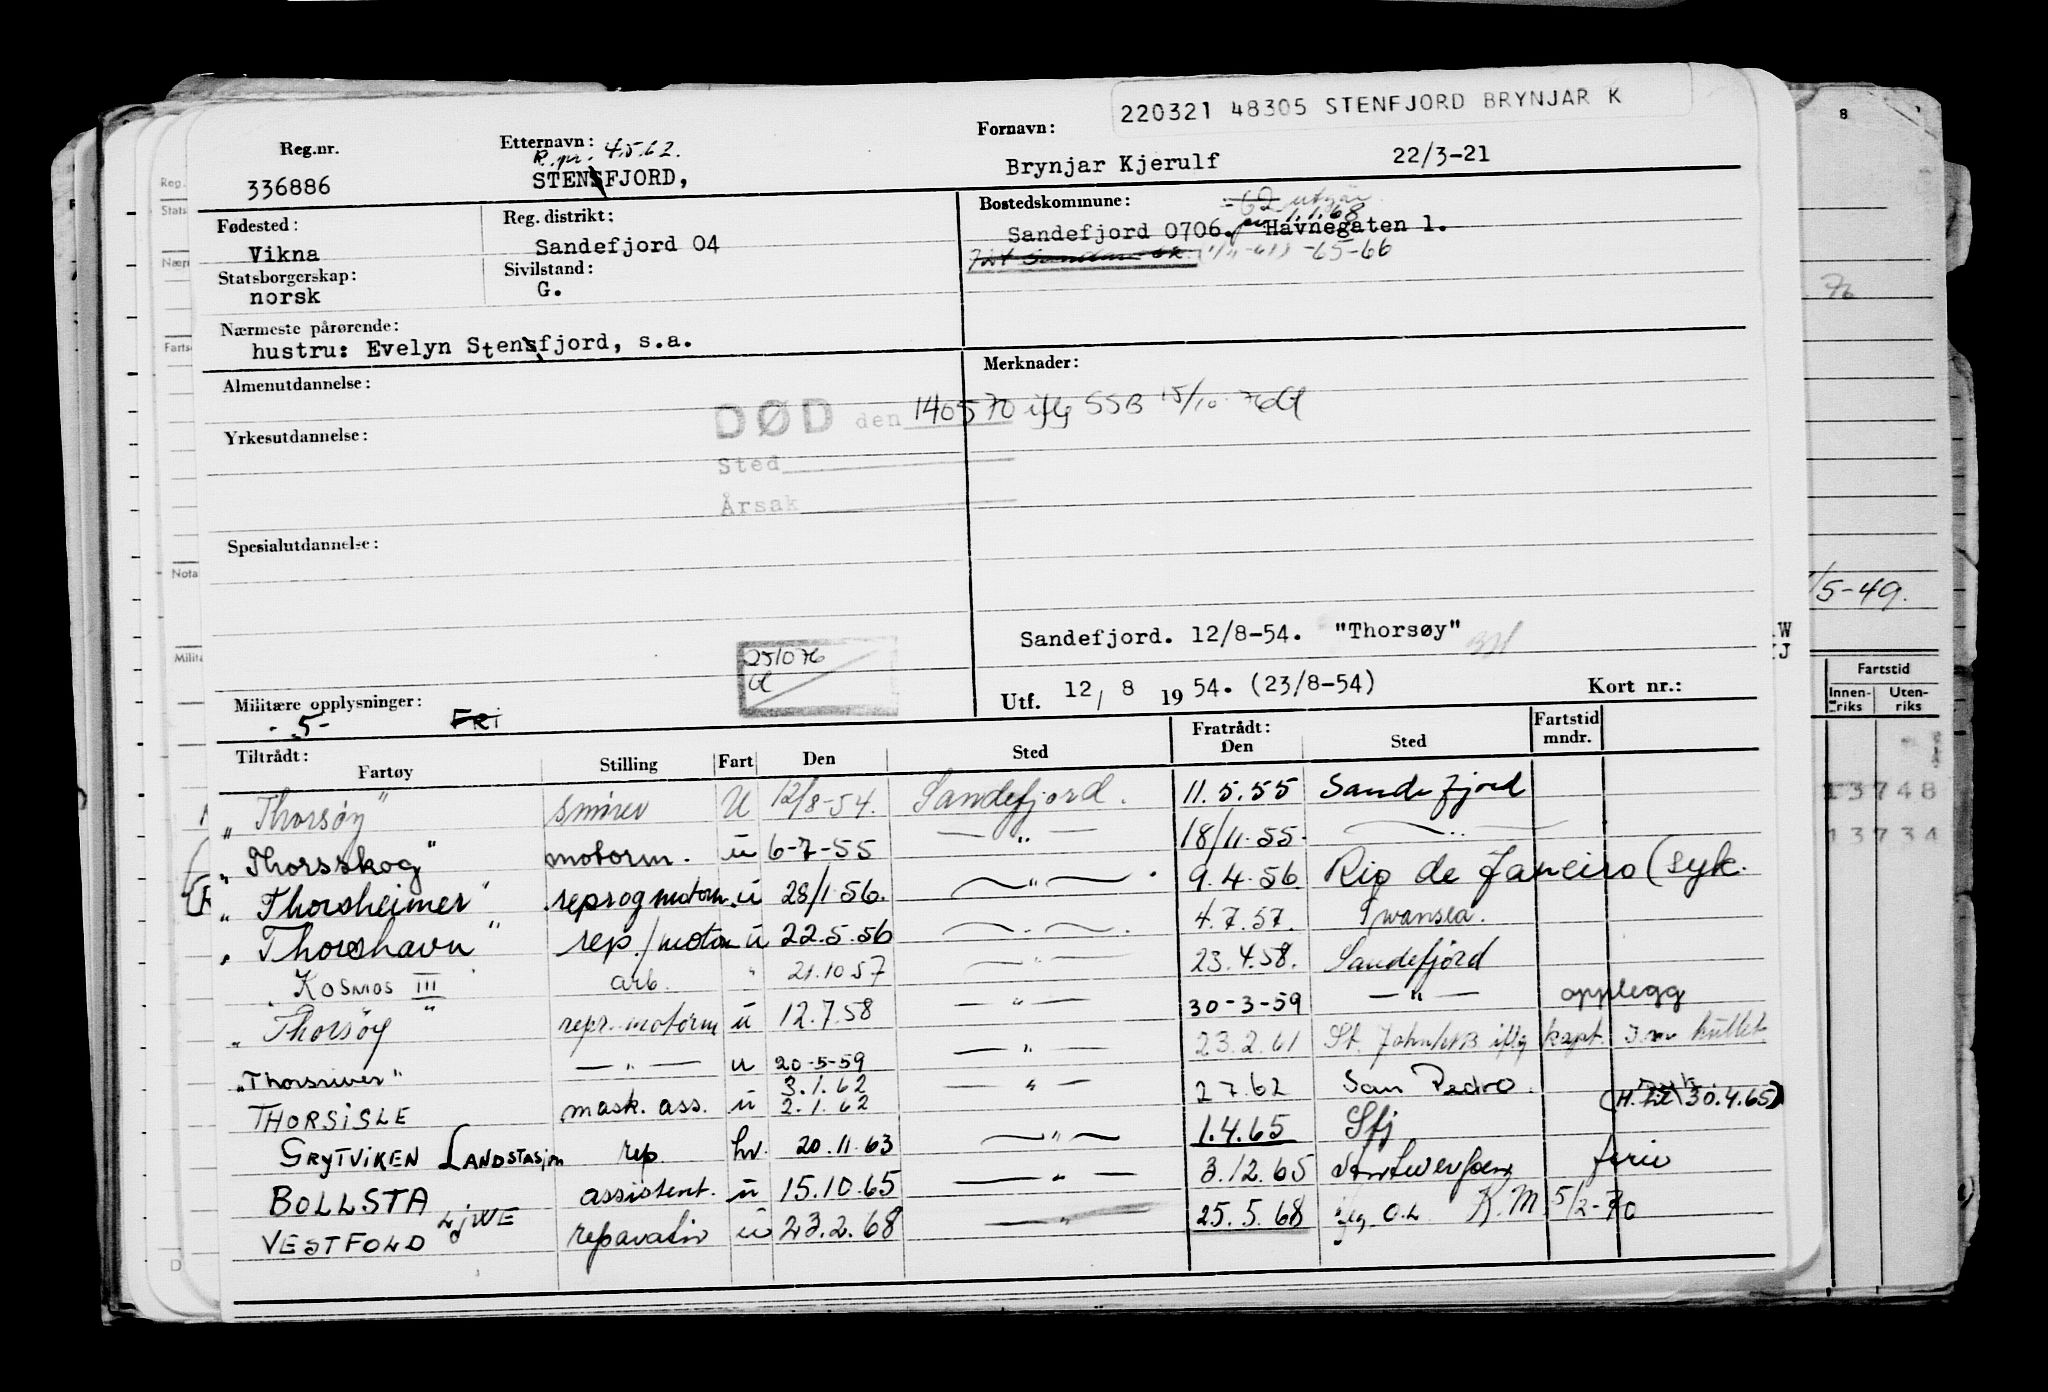 220321 48305 STENFJORD BRYNJAR K
8
Reg.nr. Etternavn: Fornavn:
R. pr. 4.5.62.
336886 STENSFJORD, Brynjar Kjerulf 22/3-21
Fødested: Reg. distrikt: Bostedskommune:
1.1.68
Vikna Sandefjord 04 Sandefjord 0706. Havnegaten 1.
Statsborgerskap: Sivilstand: -65-66
norsk G.
Nærmeste pårørende:
hustru: Evelyn Stensfjord, s.a.
Almenutdannelse: Merknader:
DØD den 140570 iflg SSB 15/10-76
Yrkesutdannelse:
Sted
Årsak
Spesialutdannelse:
/5-49.
Sandefjord. 12/8-54. "Thorsøy"
251076
Utf. 12/ 8 1954. (23/8-54) Kort nr.:
Militære opplysninger:
- 5 - FRI
Tiltrådt: Fratrådt: Fartstid
Fartøy Stilling Fart Den Sted Den Sted mndr.
"Thorsøy" smører U 12/8-54. Sandefjord. 11.5.55 Sandefjord
"Thorsskog" motorm. u 6-7-55 — " — 18/11.55. — " —
"Thorsheimer" reprogmotorm. u 28/1 56. — " — 9.4.56 Rio de Janeiro (syk.
"Thorshavn" rep./motorm u 22.5.56 — " — 4.7.57. Swansea.
"Kosmos III" arb. " 21.10 57 — " — 23.4.58. Sandefjord
"Thorsøy repr. motorm u 12.7.58 — " — 30-3-59 — " — opplegg
"Thorsriver" — " — u 20-5-59 — " — 23.2.61 St. John NB iflg kapt.
3.1.62
THORSISLE mask. ass. u 2.1.62 — " — 2 7.62 San Pedro
GRYTVIKEN LANDSTASJON rep. hv. 20.11.63 — " — 1.4.65 Sfj (H. 30.4.65)
BOLLSTA assistent. u 15.10.65 — " — 3.12.65 Antwerpen ferie
VESTFOLD reparatør u 23.2.68 — " — 25.5.68 K.M. 5/2-70
Fartstid
Innen-riks Uten-riks
13748
13734